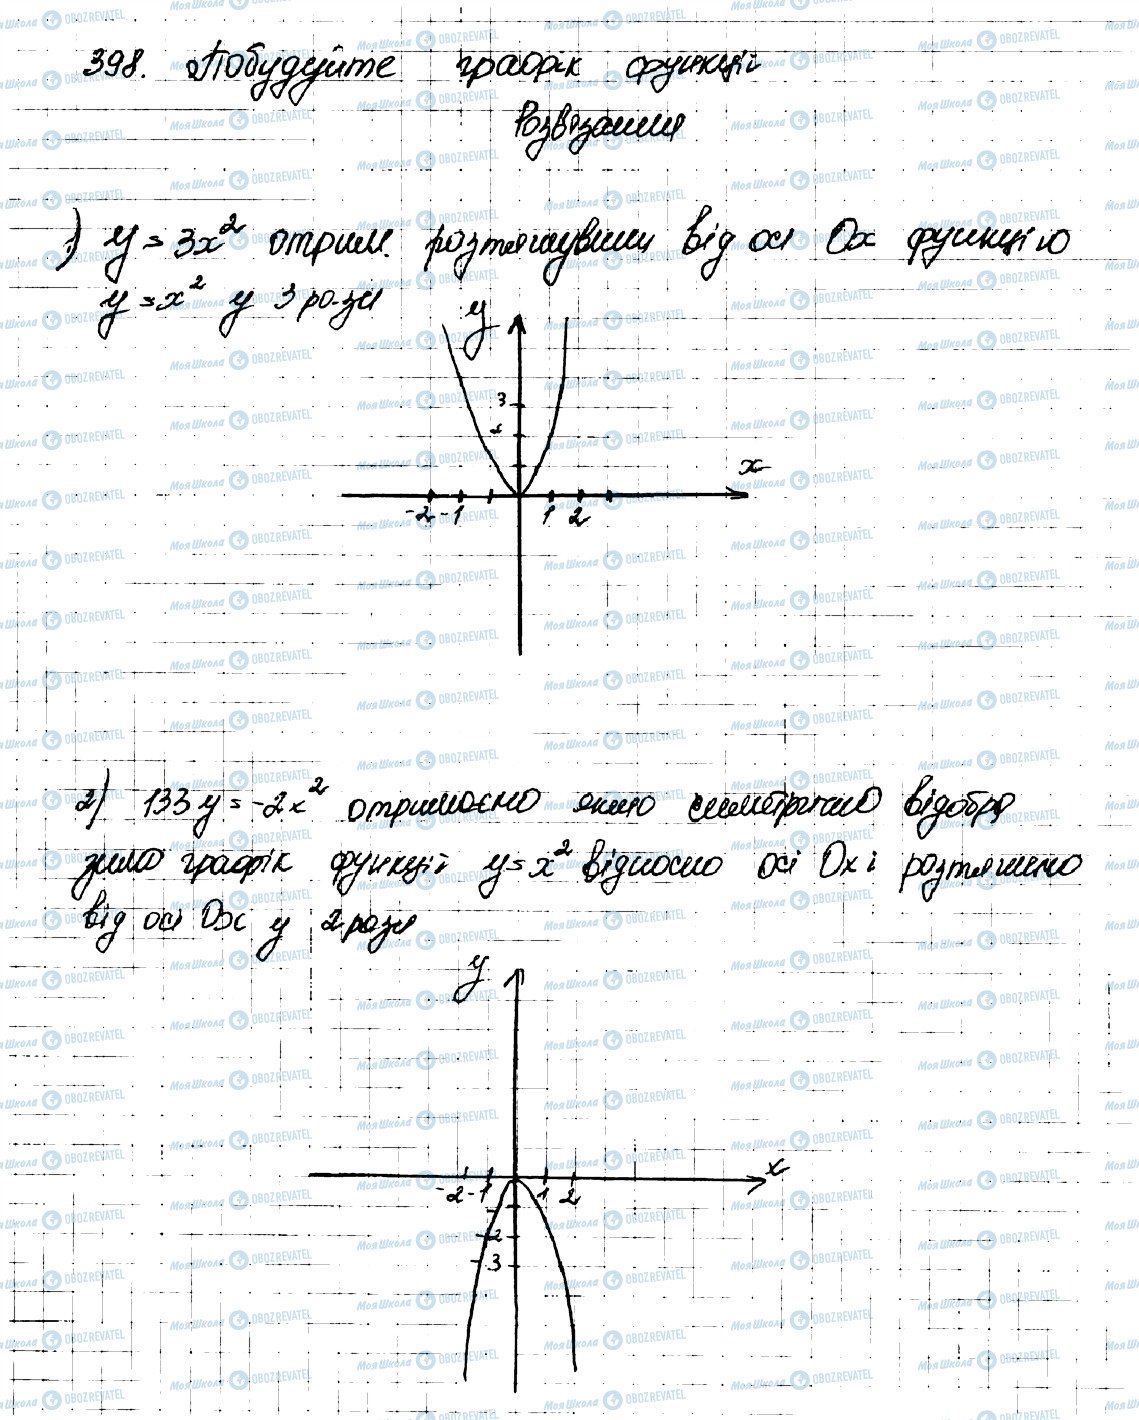 398. Побудуйте графік функцій
Розвязання
1) y = 3x² отрим. розтягнувши від осі Ox функцію
y = x² у 3 рази
y
3
x
-2 -1 1 2
2) 133 y = -2x² отримаємо якщо симетрично відобра
зимо графік функцій y = x² відносно осі Ox і розтягнемо
від осі Ox у 2 рази
y
x
-2 -1 1 2
-2
-3